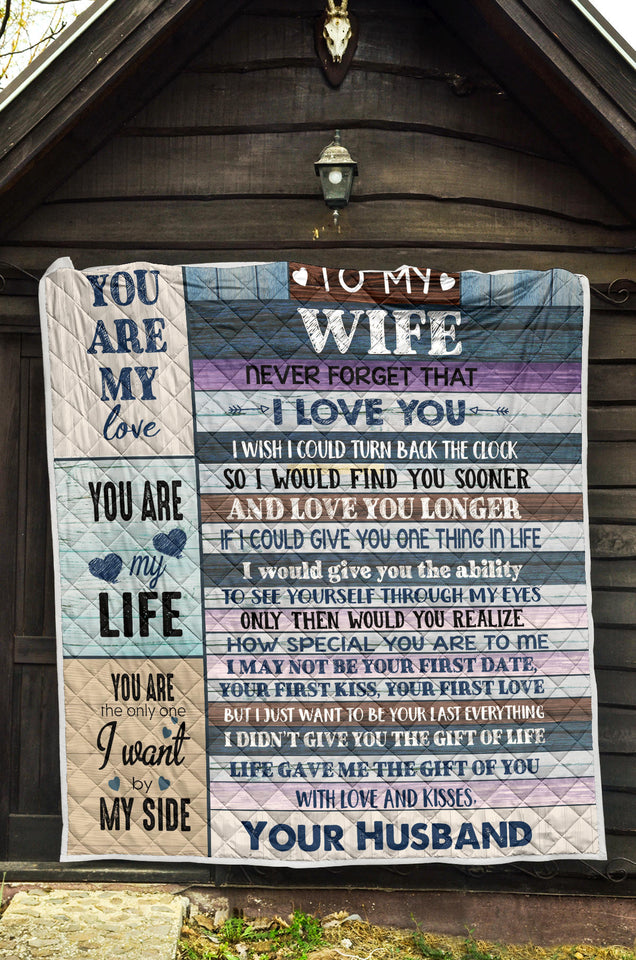 YOU
ARE
MY
love
YOU ARE
my
LIFE
YOU ARE
the only one
I want
by
MY SIDE
TO MY
WIFE
NEVER FORGET THAT
I LOVE YOU
I WISH I COULD TURN BACK THE CLOCK
SO I WOULD FIND YOU SOONER
AND LOVE YOU LONGER
IF I COULD GIVE YOU ONE THING IN LIFE
I would give you the ability
TO SEE YOURSELF THROUGH MY EYES
ONLY THEN WOULD YOU REALIZE
HOW SPECIAL YOU ARE TO ME
I MAY NOT BE YOUR FIRST DATE,
YOUR FIRST KISS, YOUR FIRST LOVE
BUT I JUST WANT TO BE YOUR LAST EVERYTHING
I DIDN'T GIVE YOU THE GIFT OF LIFE
LIFE GAVE ME THE GIFT OF YOU
WITH LOVE AND KISSES,
YOUR HUSBAND